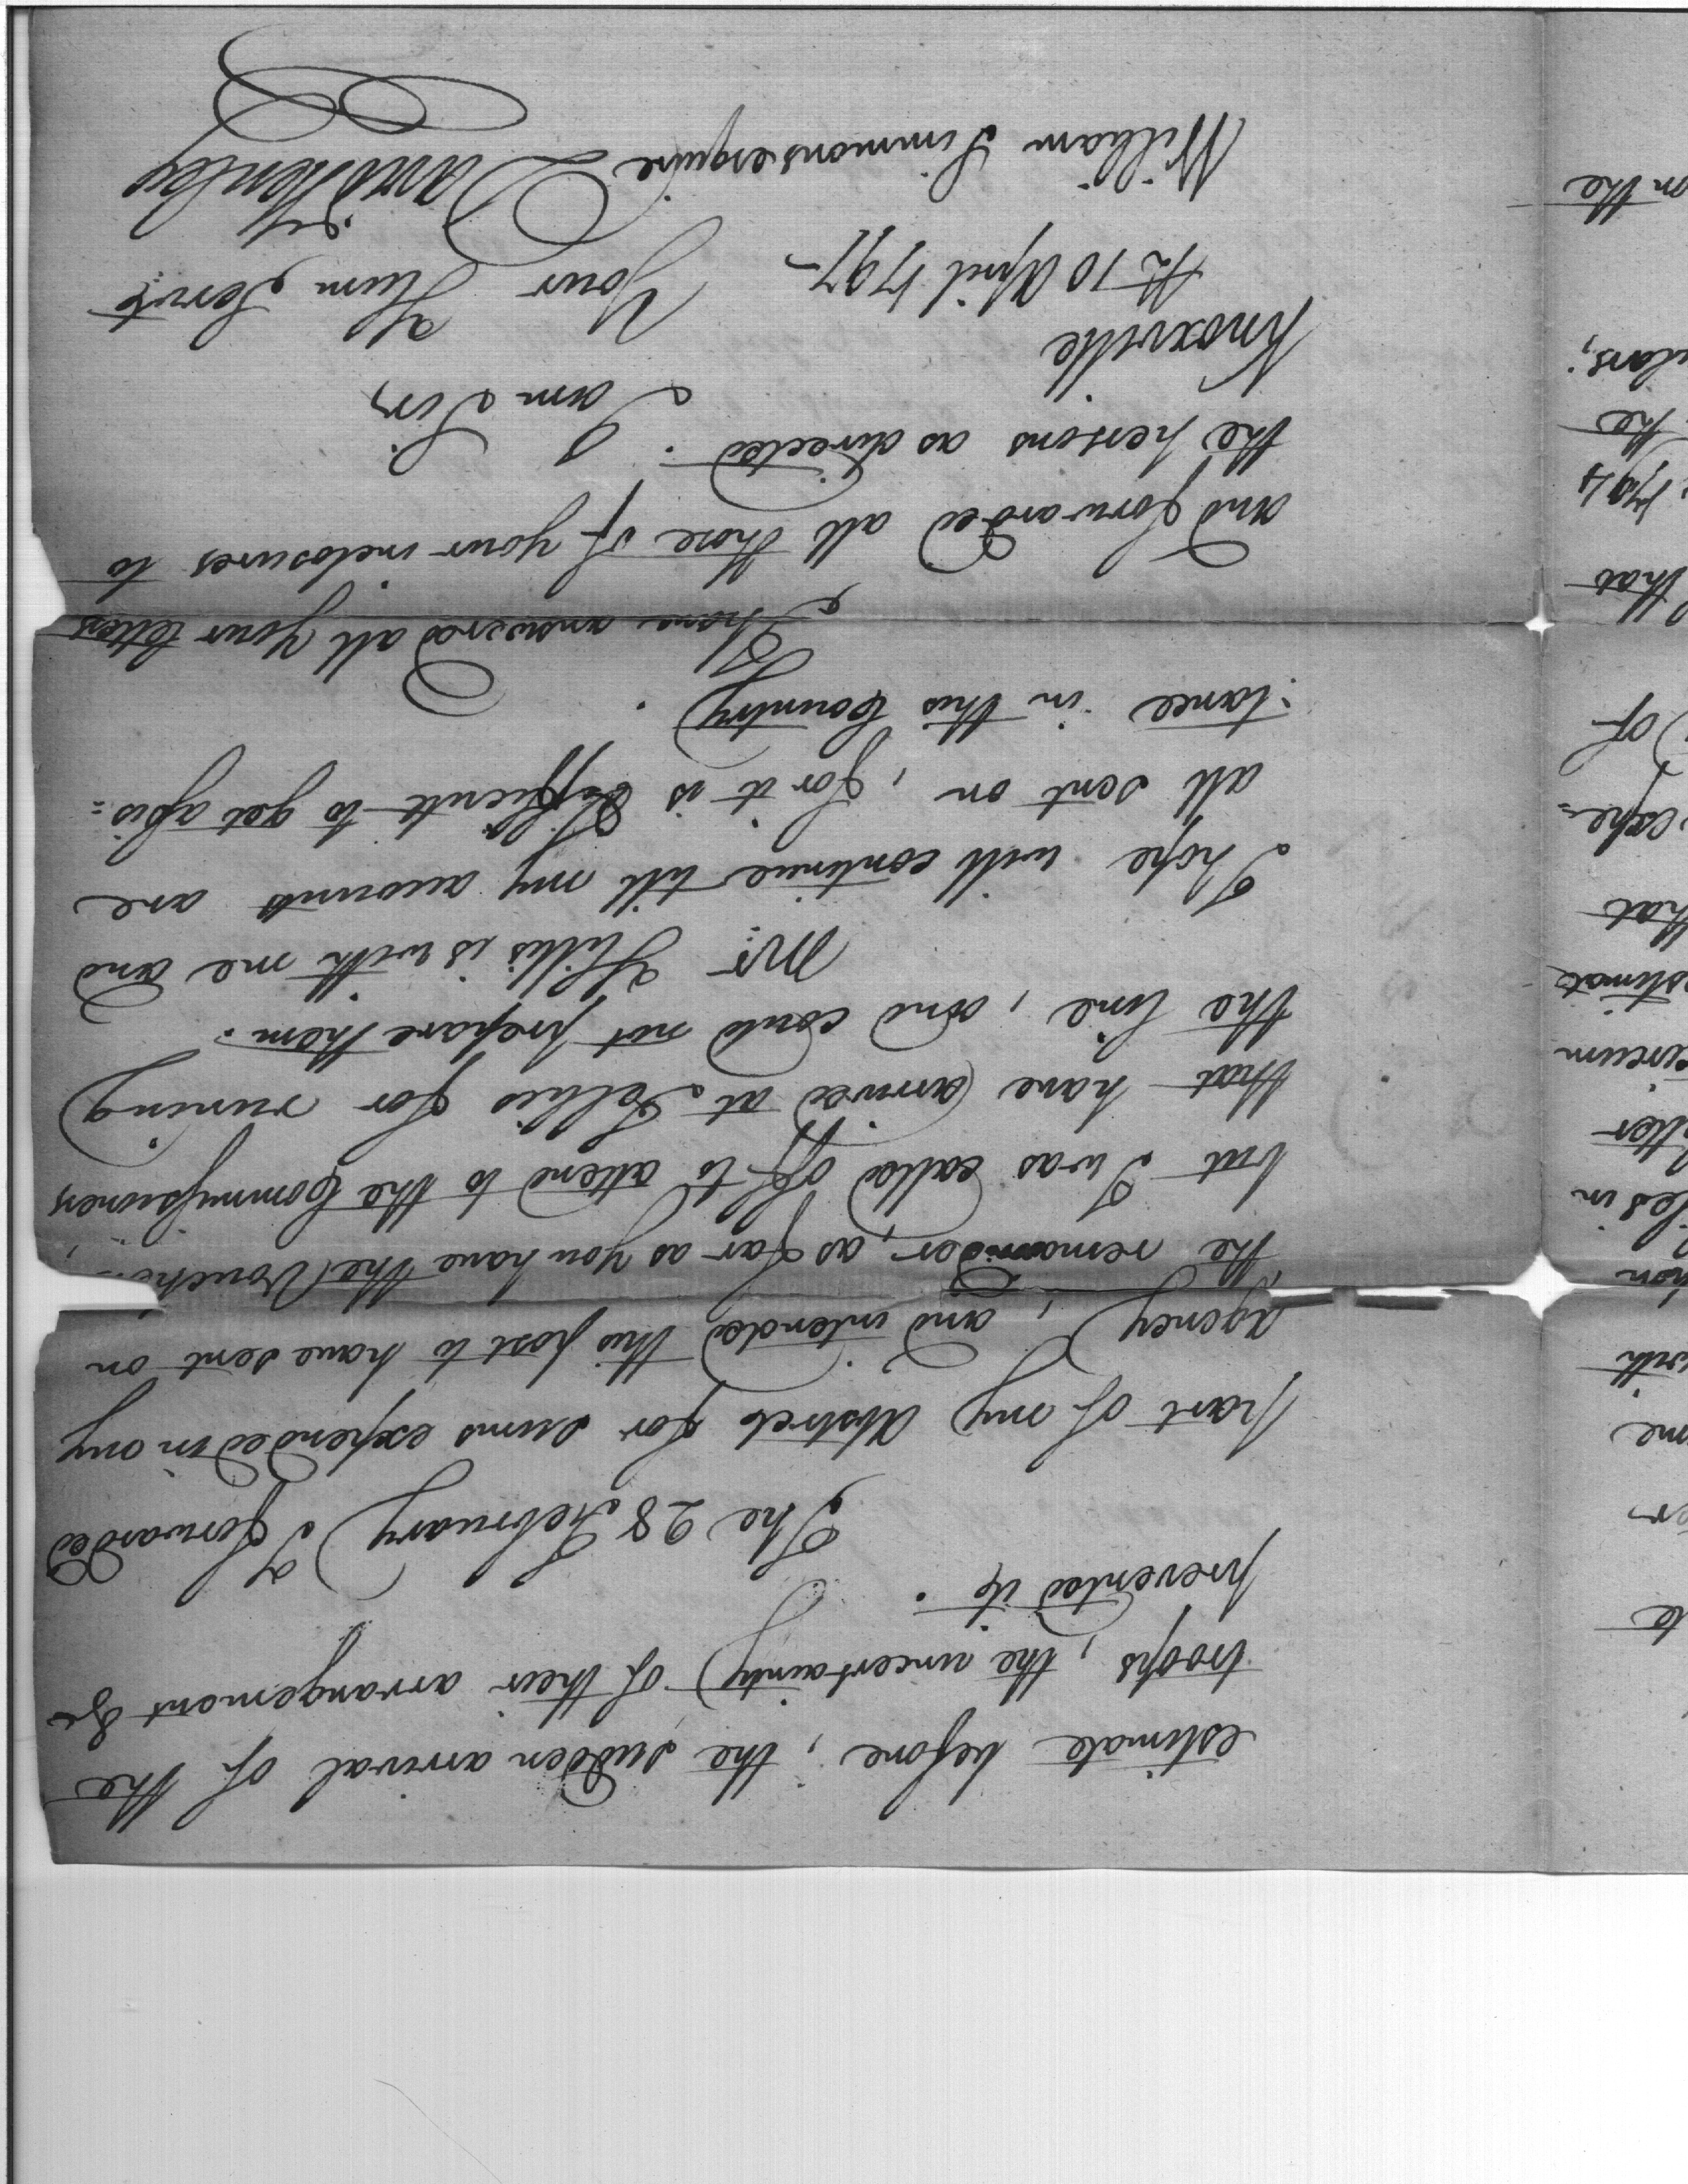 estimate before, the sudden arrival of the
troops, the uncertainty of their arrangement &c
prevented it.
The 28 February I forwarded
part of my Abstrcts for sums expended in my
agency, and intended this post to have sent on
the remainder, as far as you have the Vouche
but I was called off to attend to the Commissioners
that have arrived at Tellico for runing
the line, and could not prepare them.
Mr. Hillis is with me and
I hope will continue till my accounts are
all sent on, for it is difficult to get assis=
:tance in this Country.
I have answered all your letters
and forwarded all those of your inclosures to
the persons as directed. I
am Sir,
Knoxville
the 10 April 1797
Your Hum Servt
David Henley
William Simmons esquire
to
er
me
with
hon
les in
etter
circum
estimate
that
expe=
of
that
1794
the
ulars;
on the